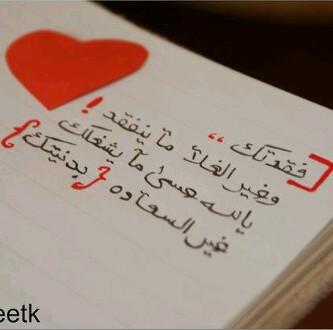 [ فقدتك ,,
وغير الغلا ما ينفقد !
يالله عسى ما يشغلك
غير السعاده { بدنيتك }
eetk